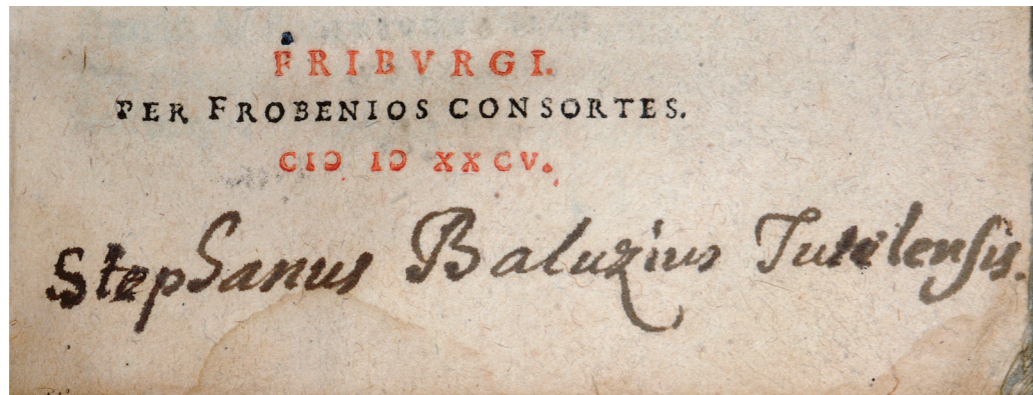 FRIBVRGI.
PER FROBENIOS CONSORTES.
CIↃ IↃ XXCV.
Stephanus Baluzius Tutelensis.